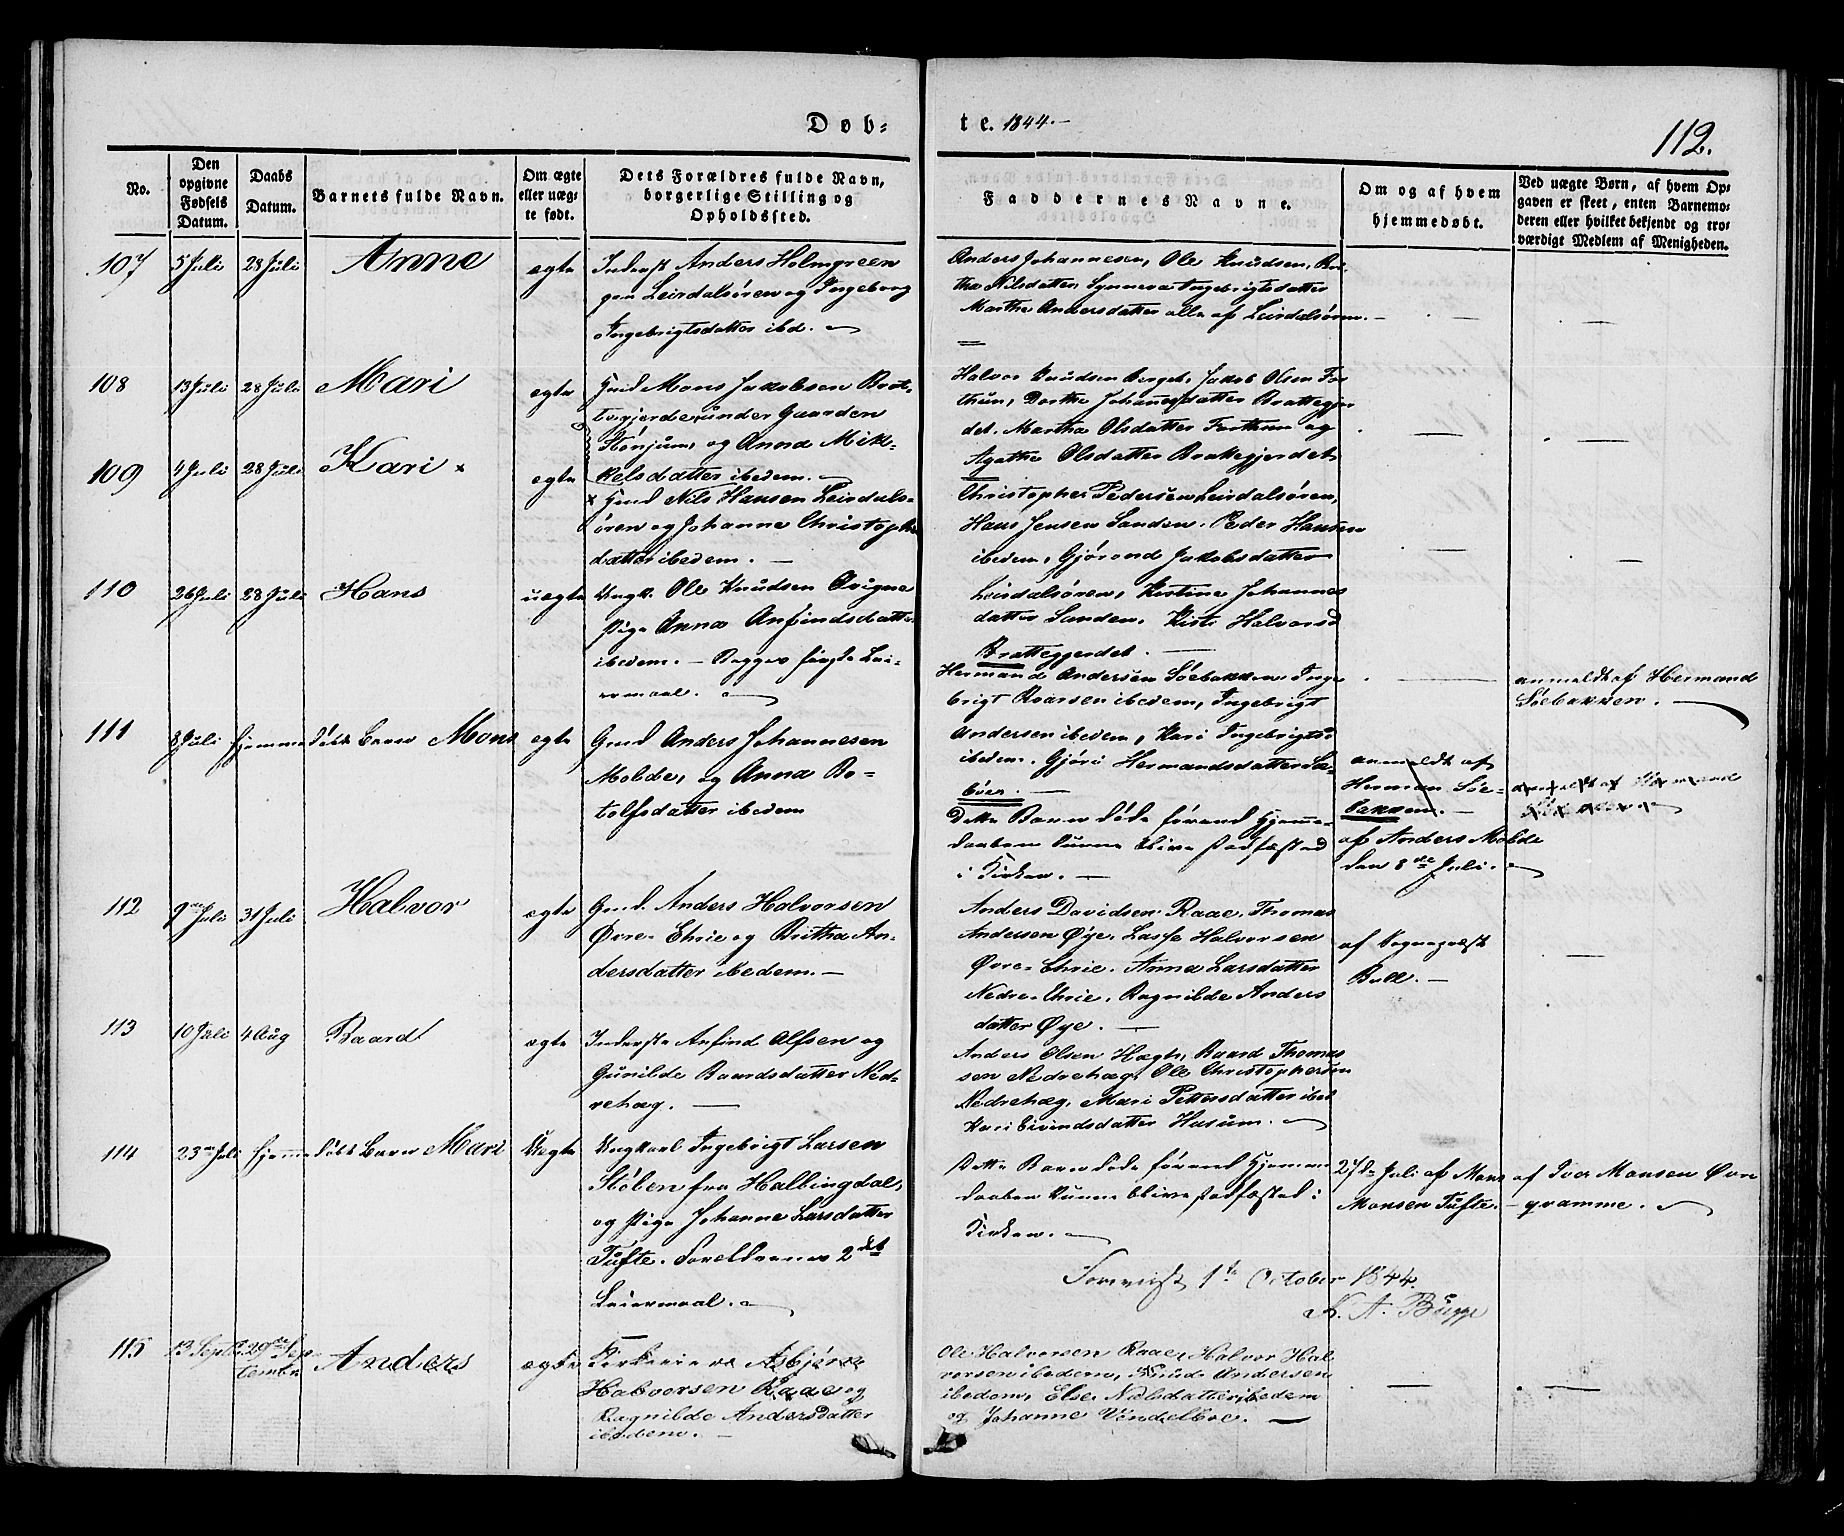 Døb-
te. 1844.-
112.
No.
Den
opgivne
Fødsels
Datum.
Daabs
Datum.
Barnets fulde Navn.
Om ægte
eller uæg-
te født.
Dets Forældres fulde Navn,
borgerlige Stilling og
Opholdssted.
Faddernes Navne.
Om og af hvem
hjemmedøbt.
Ved uægte Børn, af hvem Op-
gaven er skeet, enten Barnemo-
deren eller hvilket bekjendt og tro-
værdigt Medlem af Menigheden.
107
5 Juli
28 Juli
Anne
ægte
Inderst Anders Holmgreen
Leirdalsøren og Ingeborg
Ingebrigtsdatter ibd.
Anders Johannesen, Ole Knudsen, Bri-
tha Nilsdatter, Synneva Ingebrigtsdatter
Marthe Andersdatter alle af Leirdalsøren. -
108
13 Juli
28 Juli
Mari
ægte
Gmd Mons Jakobsen Brat-
tegjerde, under Gaarden
Stønjum, og Anna Mik-
kelsdatter ibedem.
Halvor Knudsen Berget, Jakob Olsen For-
thun, Dorthe Johannesdatter Brattegjer
det. Martha Olsdatter Forthun og
Agathe Olsdatter Brattegjerdet
109
4 Juli
28 Juli
Kari ×
ægte
× Gmd Nils Hansen Leirdals-
øren og Johanne Christophe
datter ibedem. -
Christopher Pedersen Leirdalsøren,
Hans Jensen Sanden. Peder Hansen
ibedem, Gjørond Jakobsdatter
Leirdalsøren, Kirstine Johannes
datter Sanden. Kisti Halvorsd
Brattegjerdet. -
110
26 Juli
28 Juli
Hans
uægte
Ungk. Ole Knudsen Qvigne
Pige Anna Anfindsdatter
ibedem. - Begges første Lei-
ermaal.
Hermand Andersen Søebakken, Inge
brigt Ivarsen ibedem, Ingebrigt
Andersen ibedem, Kari Ingebrigtsd
ibedem. Gjøri Hermandsdatter Sæ-
bøer. -
anmeldt af Hermand
Søebakken. -
111
8 Juli
hjemmedøbt Barn Mons
ægte
Gmd Anders Johannesen
Molde, og Anna Bo-
tolfsdatter ibedem
Dette Barn døde førend Hjemme-
daaben kunne blive stadfæsted
i Kirken. -
anmeldt af
Herman Søe-
bakken. -
af Anders Molde
den 8de Juli. -
anmeldt af Hermand
112
9 Juli
31 Juli
Halvor
ægte
Gmd. Anders Halvorsen
Øvre-Ehrie og Britha An-
dersdatter ibedem. -
Anders Davidsen Raae, Thomas
Andersen Øye, Lasse Halvorsen
Øvre-Ehrie. Anna Larsdatter
Nedre-Ehrie, Ragnilde Anders
datter Øye. -
af Sognepræst
113
10 Juli
4 Aug
Baard
ægte
Inderste Anfind Alfsen og
Gunilde Baardsdatter Ned-
rehæg. -
Anders Olsen Hægh, Baard Thomas
sen Nedrehæg, Ole Christophersen
Nedrehæg, Mari Pettersdatter ibed
Kari Eivindsdatter Husum. -
114
23 Juli
hjemmedøbt Barn Mari
Uægte
Ungkarl Ingebrigt Larsen
Støben fra Hallingdal,
og Pige Johanne Larsdatter
Tufte. Forældrenes 2det
Leiermaal. -
Dette Barn døde førend Hjemme
daaben kunne blive stadfæsted i
Kirken. -
27de Juli af Mons
Monsen Tufte. -
af Iver Monsen Øvre
qvamme. -
Foreviist 1te October 1844.
K. A. Bugge
115
13 Septbr
29de Sep
tember
Anders
ægte
Asbjørn
Halvorsen Raae og
Ragnilde Andersdatter
ibedem. -
Ole Halvorsen Raae, Halvor Hal
vorsen ibedem, Knud Andersen
ibedem, Else Nielsdatter ibedem
og Johanne Vendelboe. -